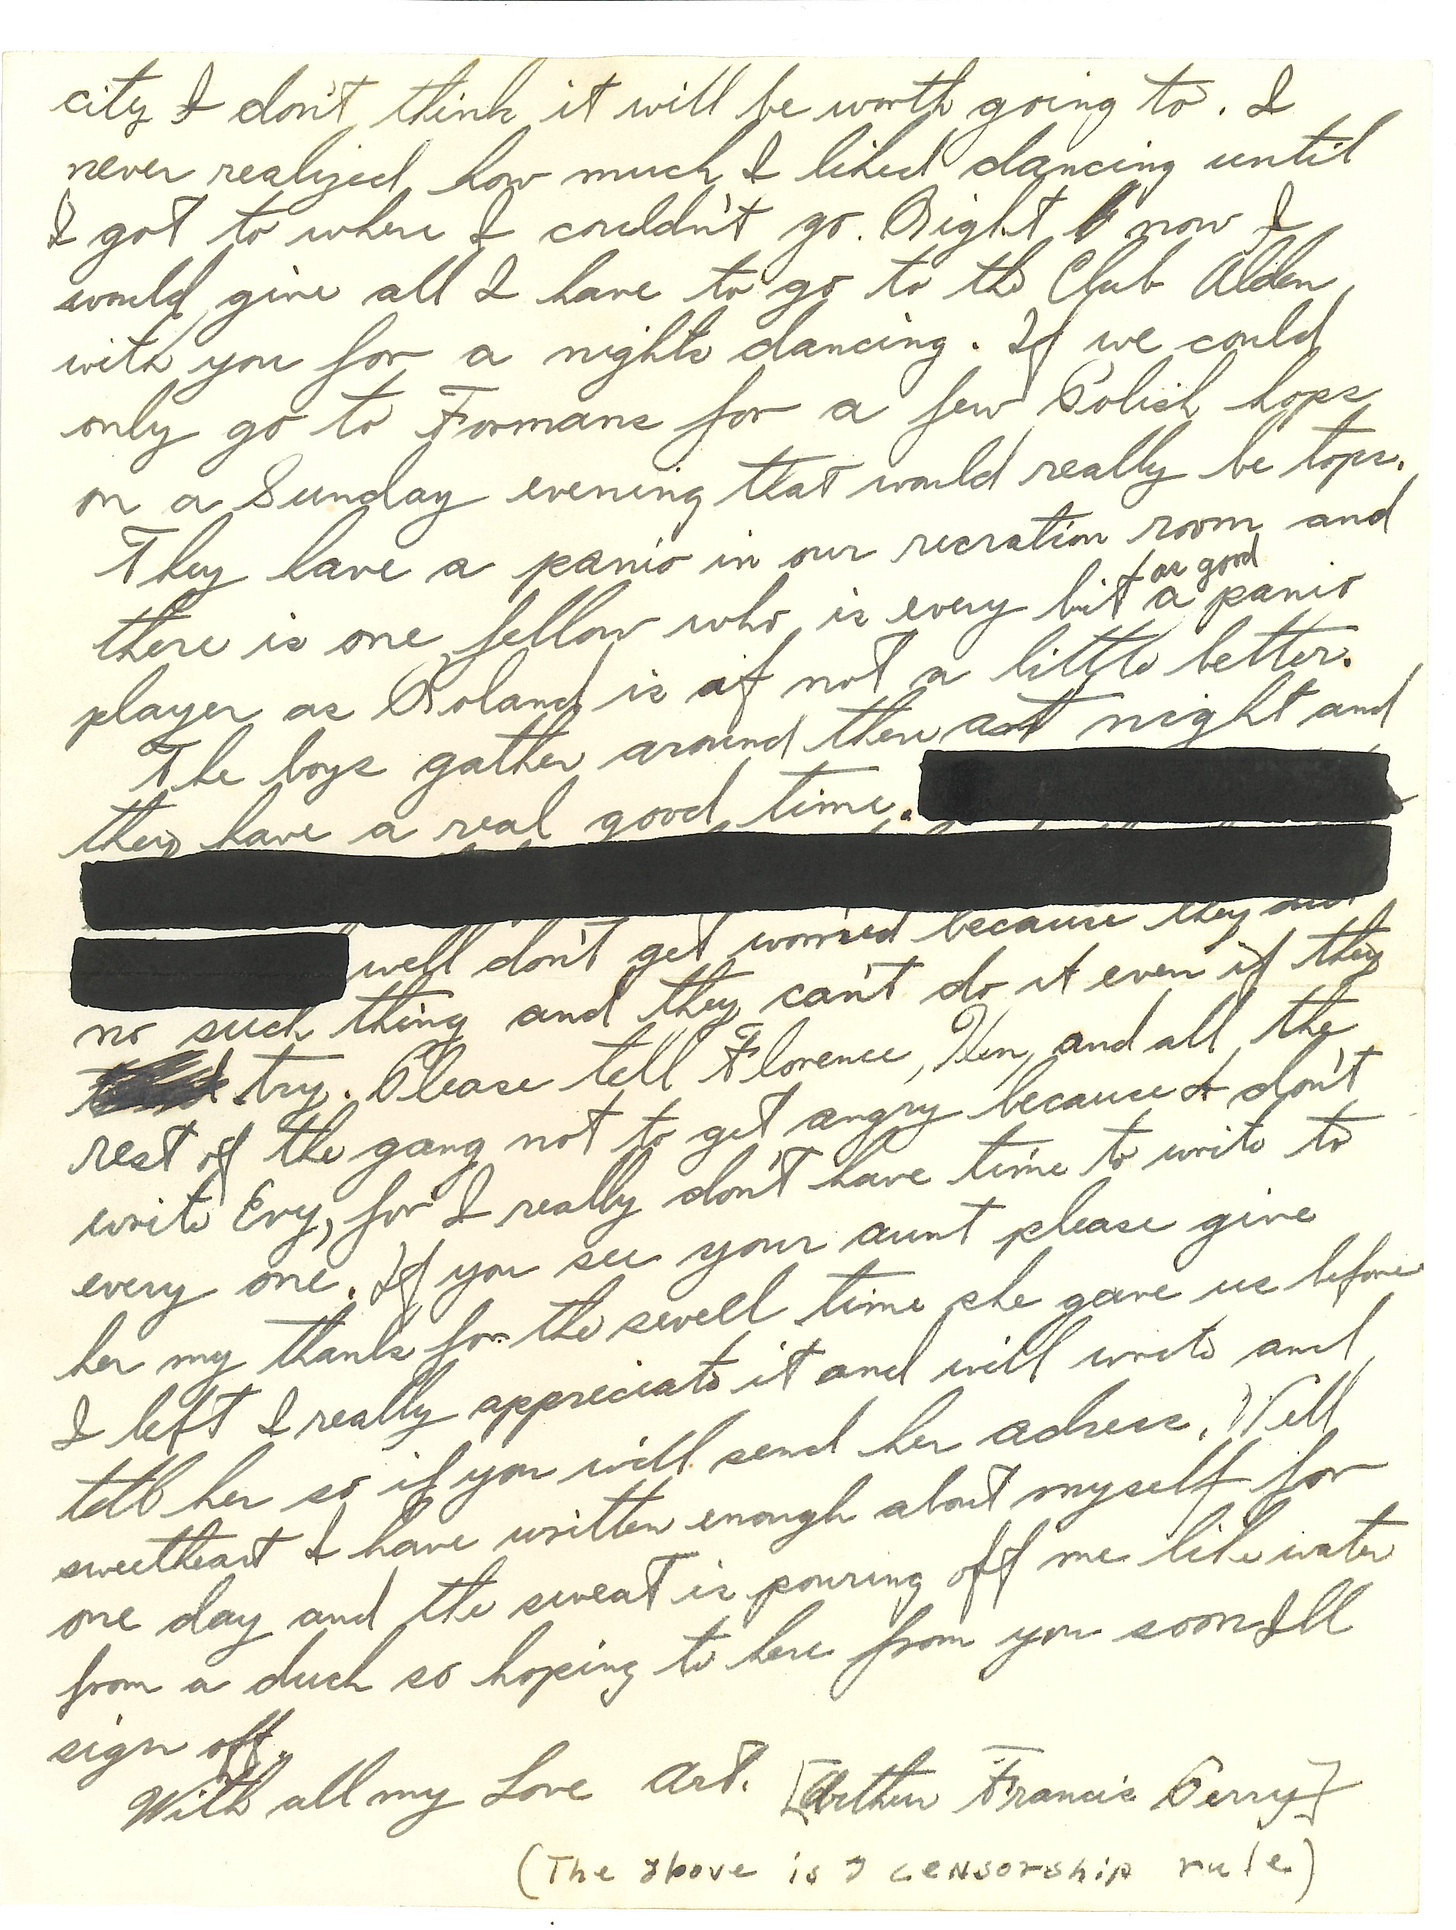 city I don't think it will be worth going to. I
never realized how much I liked dancing until
I got to where I couldn't go. Right now I
would give all I have to go to the Club Alden
with you for a nights dancing. If we could
only go to Formans for a few Polish hops
on a Sunday evening that would really be tops.
They have a panio in our recration room and
there is one fellow who is every bit as good a panio
player as Roland is if not a little better.
The boys gather around there at night and
they have a real good time.
well don't get worried because they
no such thing and they can't do it even if they
try. Please tell Florence, Ken, and all the
rest of the gang not to get angry because I don't
write Evy, for I really don't have time to write to
every one. If you see your aunt please give
her my thanks for the swell time she gave us before
I left I really appreciate it and will write and
tell her so if you will send her adress. Well
sweetheart I have written enough about myself for
one day and the sweat is pouring off me like water
from a duck so hoping to here from you soon Ill
sign off.
With all my Love Art. [Arthur Francis Perry]
(The above is a censorship rule.)